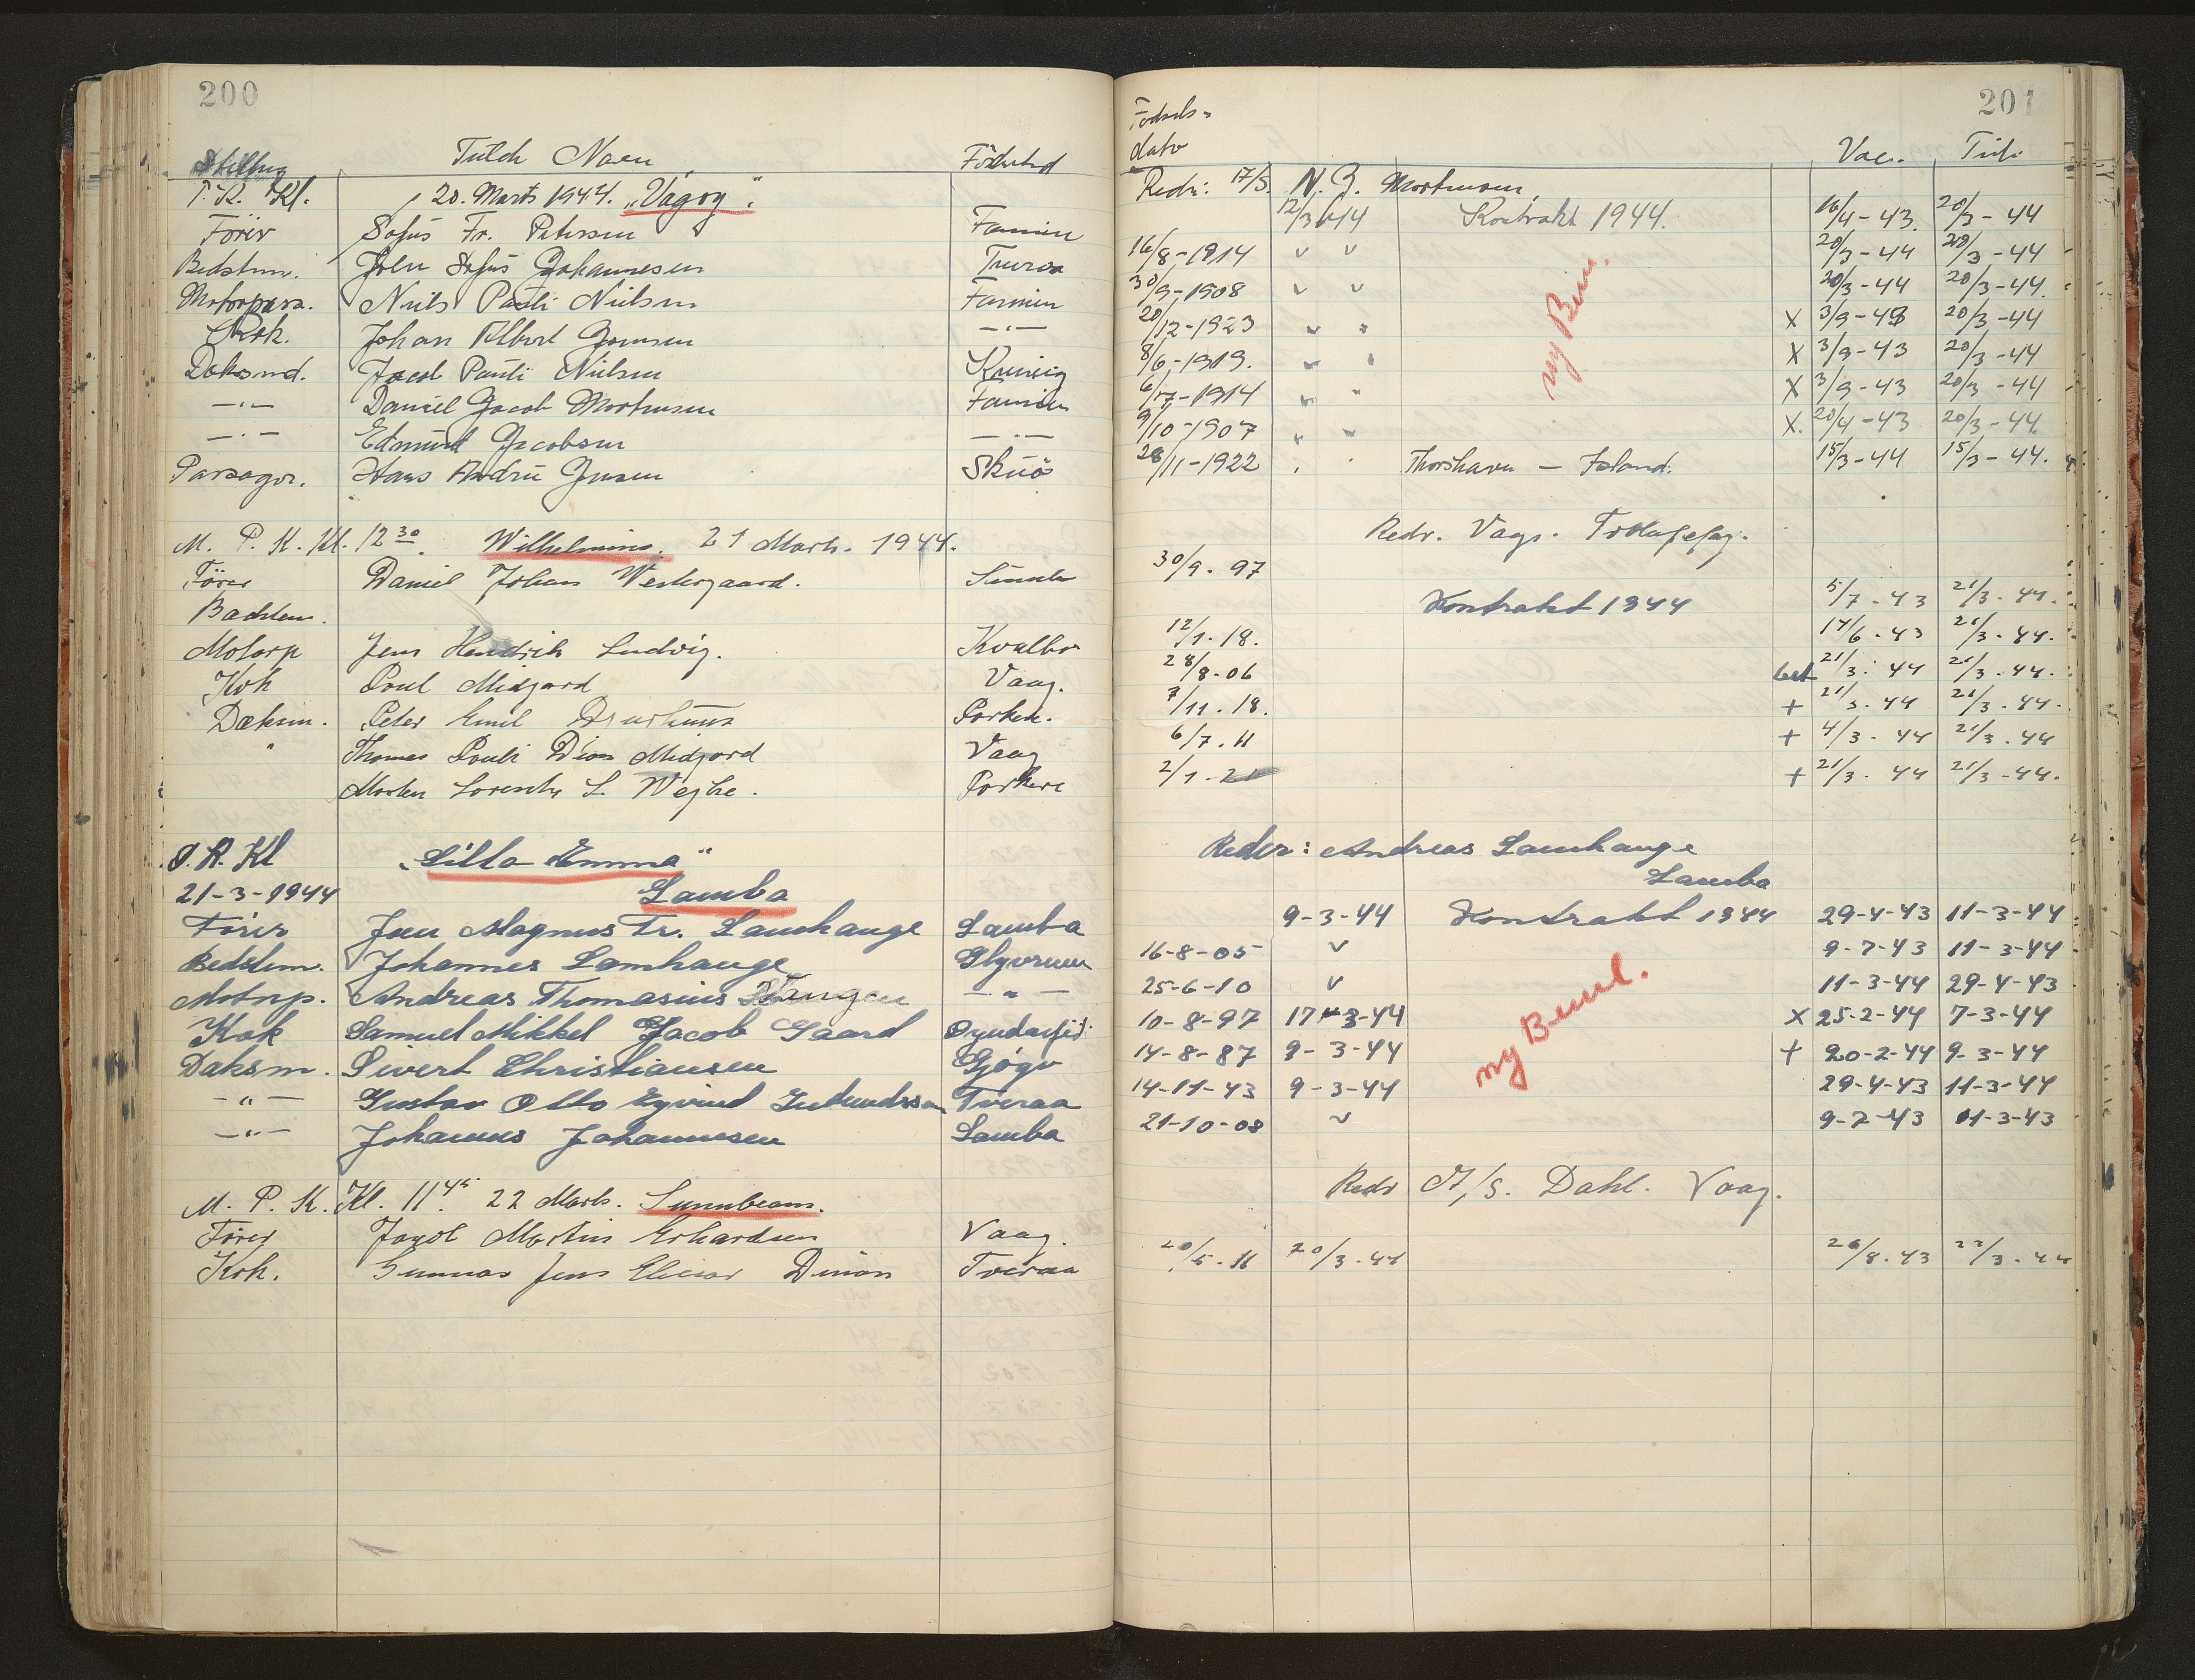 200
Stilling Fulde Navn Födested
P. K. Kl. 20. Marts 1944. "Vágoy".
Förer Sofus Fr. Petersen Famien
Bedstm. John Sofus Johannesen Tveraa
Motorpass. Niels Pauli Nielsen Famien
Kok. Johan Albert Jensen — " —
Doksmd. Jacob Pauli Nielsen
— " — Daniel Jacob Mortensen Famien
— " — Edmund Jacobsen — " —
Passager. Hans Andrü Jensen Skuö
M. P. K. Kl. 12 30. Wilhelmina. 21 Marts. 1944.
Förer Daniel Johan Vestergaard. Sumbø
Bedstem.
Motorp Jens Hendrik Ludvig. Kvalbø
Kok Poul Midjord Vaag.
Dæksm. Peter Emil Djurhuus Porkek.
" Thomas Pauli Dion Midjord Vaag
Morten L. Wejhe. Porkere
P. K. Kl "Lilla Emma"
21-3-1944 Lamba
Förer Joen Magnus Fr. Lamhauge Lamba
Bedstem. Johannes Lamhauge
Motorp. Andreas Thomasius — " —
Kok Samuel Mikkel Jacob Gaard
Daksm. Sivert Christiansen Gjógv
— " — Gustav Otto Eyvind Tveraa
— " — Johannes Johannesen Lamba
M. P. K. Kl. 11 45. 22 Marts. Sunnbeam.
Förer Jacob Martin Erhardsen Vaag.
Kok. Gunnar Jens Elieser Tveraa
201
Födsels-
dato Vac. Tilt.
Reder: 17/3. N. J. Mortensen,
12/3 1944 Kontrakt 1944. 16/4-43. 20/3-44
16/8-1914 v v 20/3-44 20/3-44
30/9-1908 v v 20/3-44 20/3-44.
20/12-1923 " " X 3/9-43 20/3-44
8/6-1919. " " X 3/9-43 20/3-44
6/7-1914 " " X 3/9-43 20/3-44
9/10-1907 " " X. 20/4-43 20/3-44
28/11-1922 " " Thorshavn — Island. 15/3-44 15/3-44.
ny Bem.
Redr. Vags.
30/9. 97
Kontrakt 1944 5/7-43 21/3-44.
12/1.18. 17/6-43 21/3-44.
28/8-06 21/3-44 21/3-44.
7/11.18. + 21/3-44 21/3-44.
6/7.11 + 4/3-44 21/3-44
2/1-21 + 21/3-44 21/3-44.
Reder: Andreas Lamhauge
Lamba
9-3-44 Kontrakt 1944 29-4-43 11-3-44
16-8-05 v 9-7-43 11-3-44
25-6-10 v 11-3-44 29-4-43
10-8-97 17-3-44 X 25-2-44 7-3-44
14-8-87 9-3-44 + 20-2-44 9-3-44
14-11-43 9-3-44 29-4-43 11-3-44
21-10-08 v 9-2-43 11-3-43
ny Beml.
Redr A/S. Dahl. Vaag.
20/5-11 20/3-44 26/8-43 22/3-44